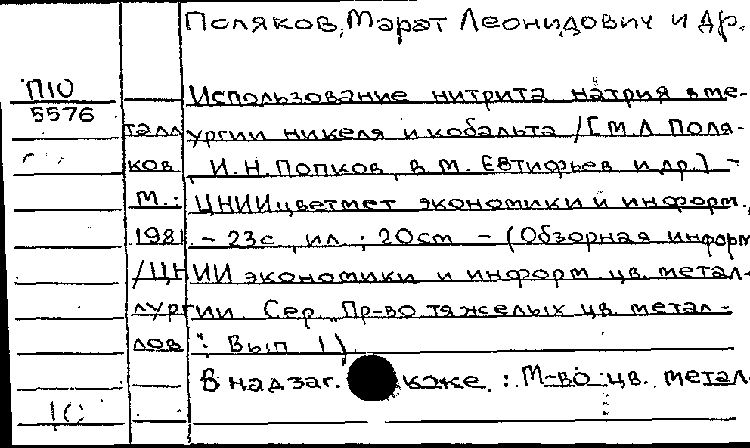 Поляков, Марат Леонидович и др.
П10
5576
Использование нитрита натрия в ме-
таллургии никеля и кобальта / [М.Л. Поля-
ков, И.Н. Попков, В.М. Евтифьев и др.] -
М.: ЦНИИцветмет экономики и информ.,
1981 - 23с., ил.; 20см - (Обзорная информ
/ЦНИИ экономики и информ. цв. метал-
лургии. Сер. Пр-во тяжелых цв. метал-
лов; Вып 1)
В надзаг. также: М-во цв. метал
10